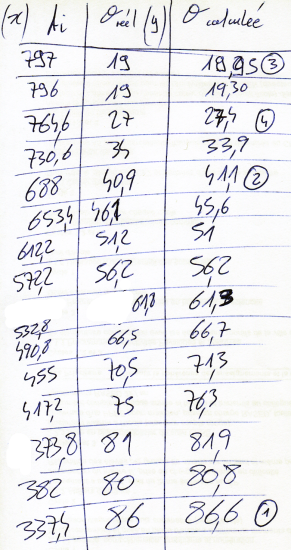 (x) Ai θ réel (y) θ calculée
797 19 18,95 ③
796 19 19,30
764,6 27 27,4 ④
730,6 34 33,9
688 40,9 41,1 ②
653,4 46,1 45,6
612,2 51,2 51
572,2 56,2 56,2
61,8 61,3
532,8 66,5 66,7
490,8
455 70,5 71,3
417,2 75 76,3
373,8 81 81,9
382 80 80,8
337,4 86 86,6 ①